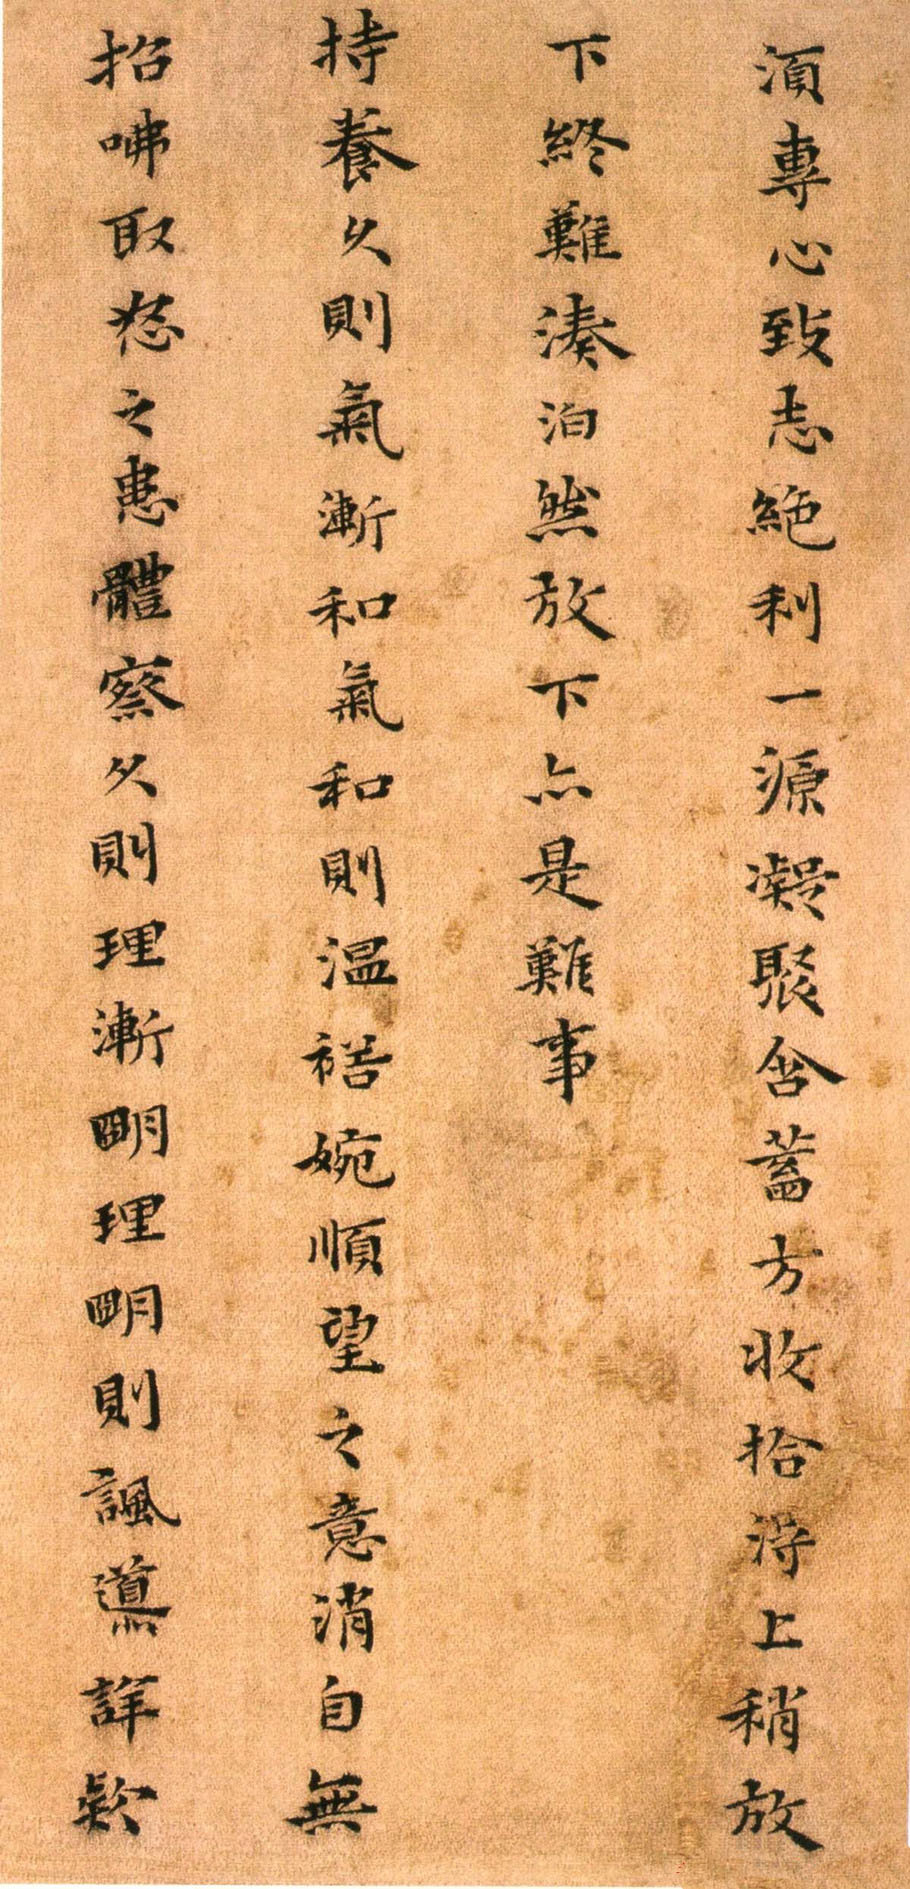 湏專心致志絶利一源凝聚含蓄方收拾得上稍放
下終難湊泊然放下亦是難事
持養久則氣漸和氣和則温裕婉順望之意消自無
招咈取怒之患體察久則理漸明理明則諷導詳款